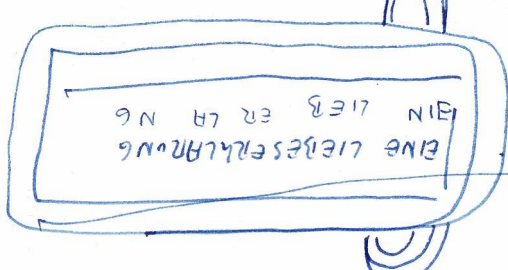 EINE LIEBESERKLARUNG
EIN LIEB ER LA NG